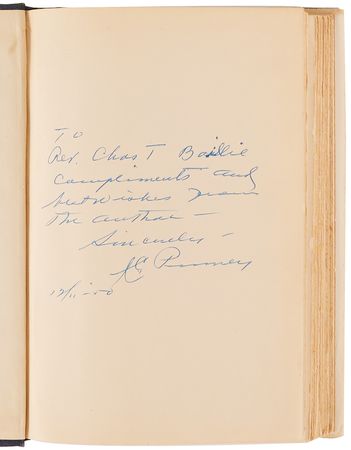 To
Rev. Chas T Baillie
compliments and
best wishes from
the author —
Sincerely —
Penney
12/11-50